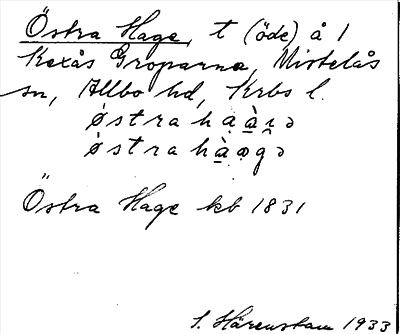 Östra Hage, t (öde) å 1
Kexås Groparna, Mistelås
sn, Allbo hd, Krbs l.
östra hạạ̀i̯ə
östra hạ̀ạgə
Östra Hage kb 1831
S. Härenstam 1933